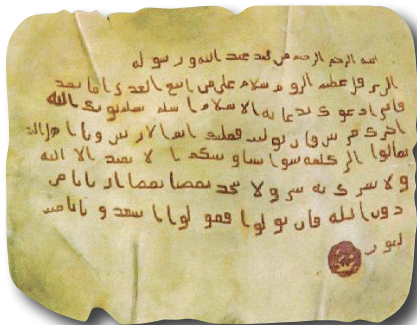 بسم الله الرحمن الرحيم من محمد عبد الله ورسوله
الى هرقل عظيم الروم سلام على من اتبع الهدى اما بعد
فانى ادعوك بدعاية الاسلام اسلم تسلم يوتك الله
اجرك مرتين فان توليت فعليك اثم الاريسين ويا اهل
تعالوا الى كلمة سوا بيننا وبينكم ا لا نعبد الا الله
ولا نشرك به ولا يتخذ بعضنا بعضا اربابا من
دون الله فان تولوا فقولوا اشهدوا بانا مس
لمون